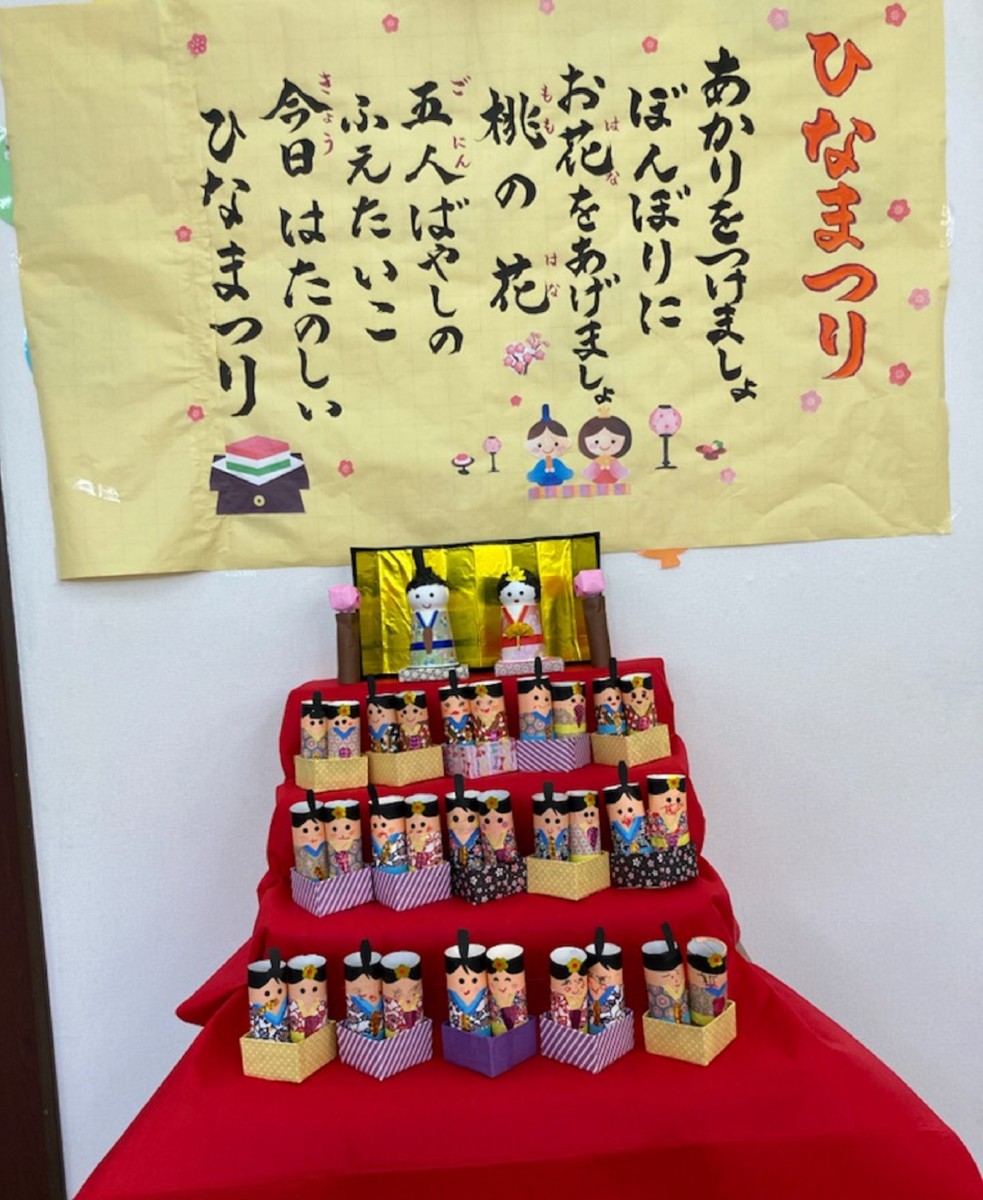 ひなまつり
あかりをつけましょ
ぼんぼりに
お花をあげましょ
はな
桃の花
もも
はな
五人ばやしの
ご
にん
ふえたいこ
今日はたのしい
きょう
ひなまつり